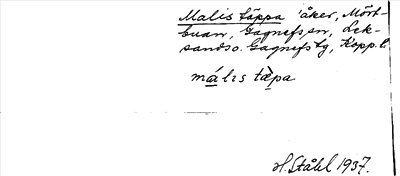 Malis täppa 'åker, Mört-
buan, Gagnefs sn, Lek-
sands o. Gagnefs tg, Kopp. l.
mális tæ̀pa
H. Ståhl 1937.